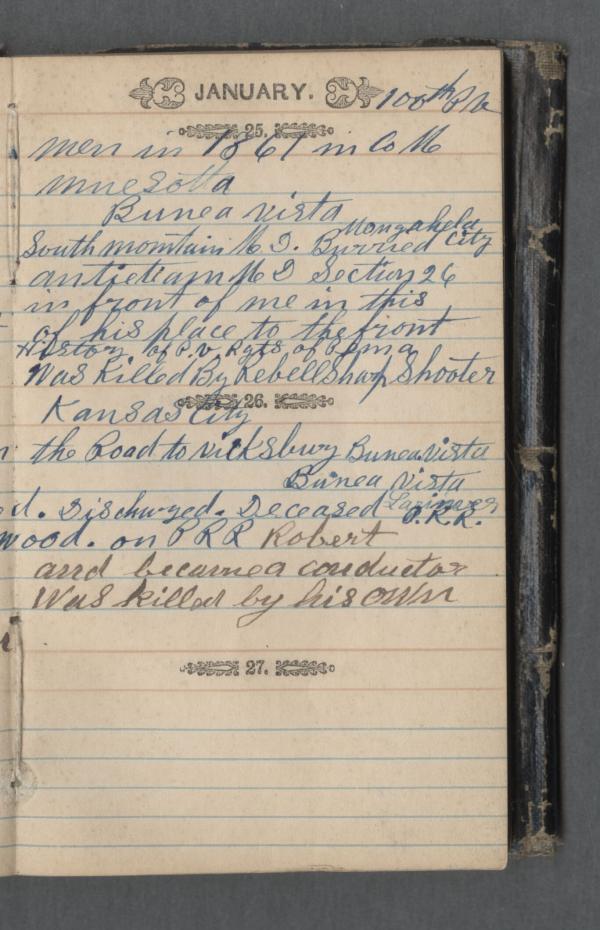 JANUARY.
100th P V
25.
men in 1861 in Co M
mnesotta
Bunea vista
Mongahela
South mountain M D. Burried City
antietiam M D Section 26
in front of me in this
of his place to the front
History of P.V. Rgts of Penna
Was Killed By Rebell Sharp Shooter
26.
Kansas City
the Road to vicksburg Bunea vista
Bunea vista
d. Discharged. Deceased Larimer
P.R.R.
wood. on P R R Robert
and became a conductor
Was killed by his own
27.